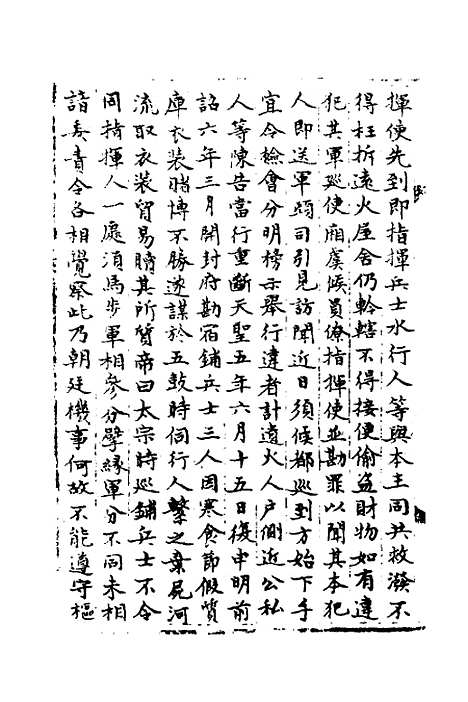 揮使先到即指揮兵士水行人等與本主同共救潑不
得枉拆遠火屋舍仍軨轄不得接便偷盗財物如有違
犯其軍巡使廂虞候員僚指揮使並勘罪以聞其本犯
人即送軍頭司引見訪聞近日須候都巡到方始下手
宜令檢會分明榜示舉行違者計遺火人户側近公私
人等陳告當行重斷天聖五年六月十五日復申明前
詔六年三月開封府勘宿鋪兵士三人因寒食節假質
庫衣装賭博不勝遂謀於五鼓時伺行人擊之棄屍河
流取衣装貿易贖其所質帝曰太宗時巡鋪兵士不令
同指揮人一處須馬步軍相參分擘緣軍分不同未相
諳委責令各相覺察此乃朝廷機事何故不能遵守樞